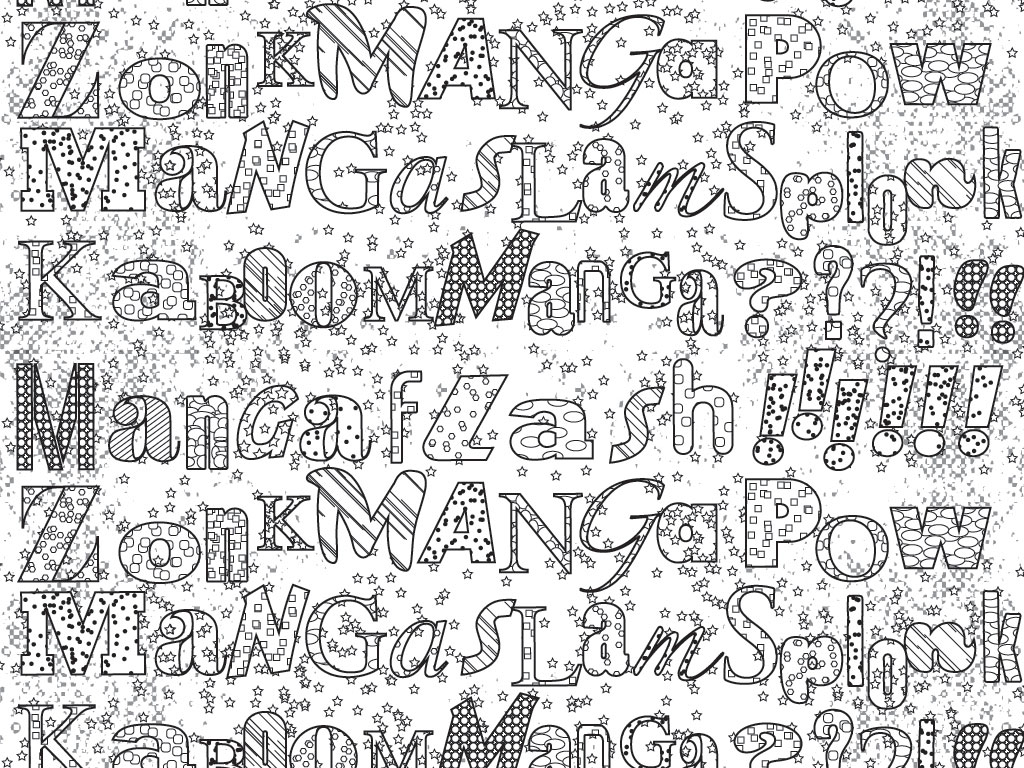 ZonK MANGa Pow
MaNGa sLamSplonk
KaBOOM Manga ????!!!
Manga fLash !!!!!!
ZonK MANGa Pow
MaNGa sLamSplonk
KaBOOM Manga ???!!!